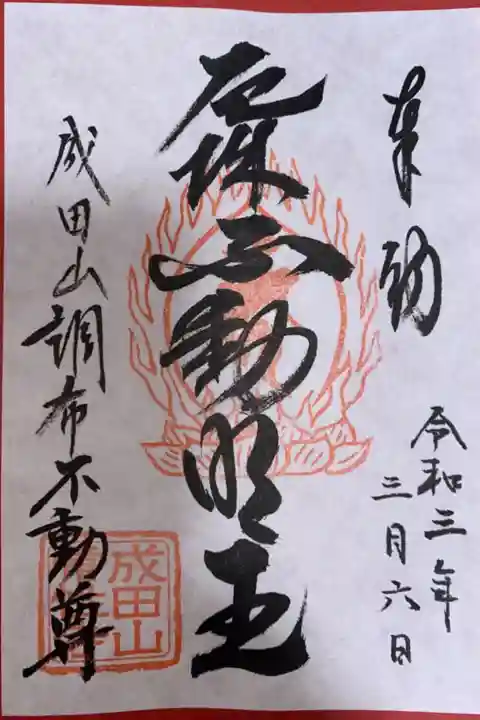 奉拝
令和三年
三月六日
厄除不動明王
成田山調布不動尊
成田山